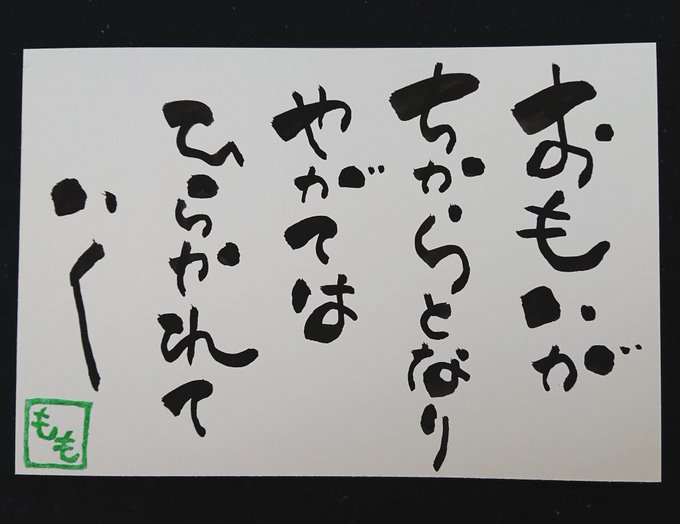 おもいが
ちからとなり
やがては
ひらかれて
いく
もも